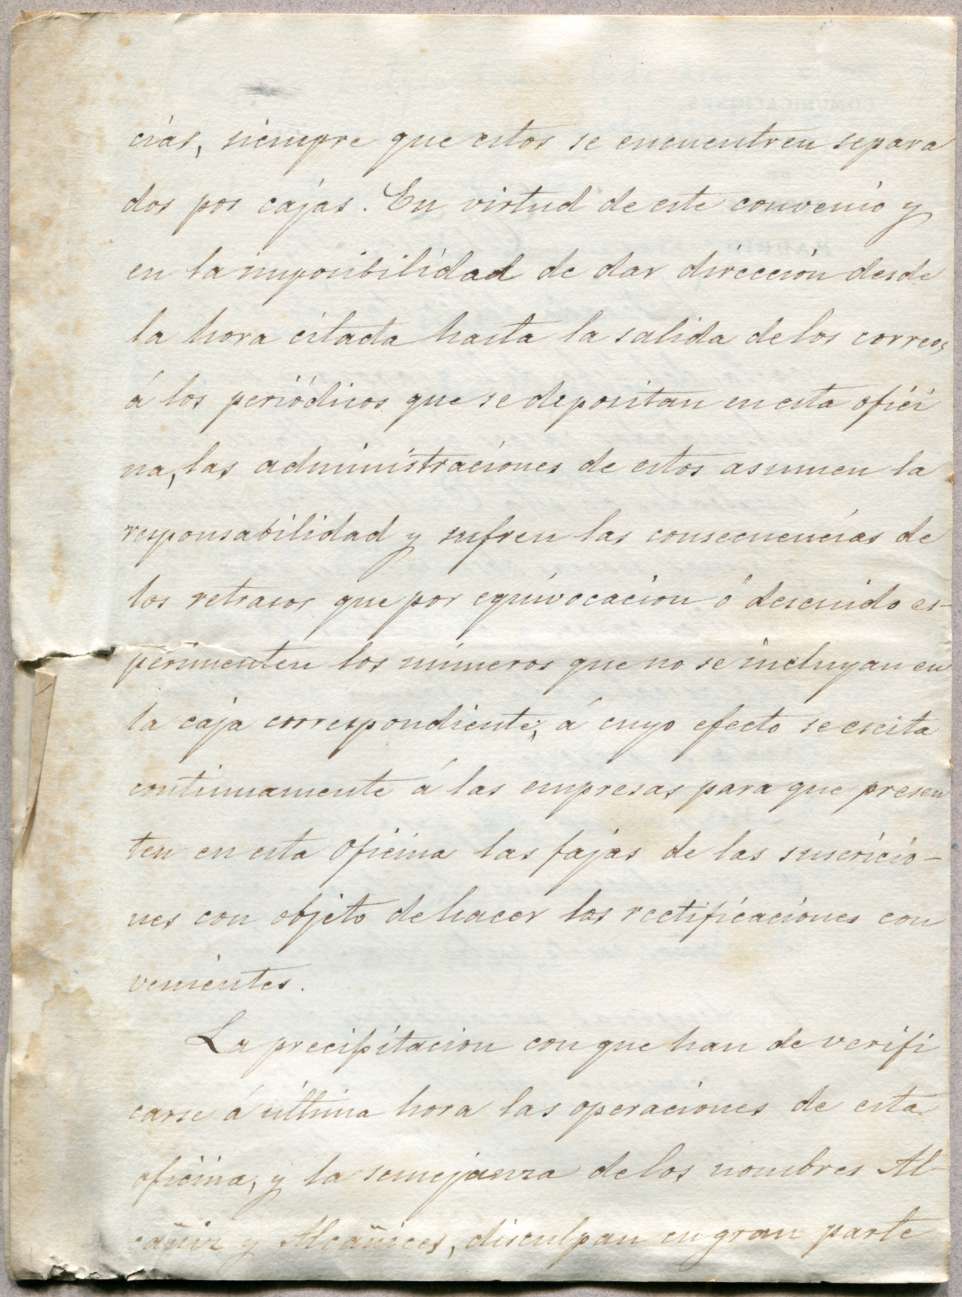 cias, siempre que estos se encuentren separa
dos por cajas. En virtud de este convenio y
en la imposibilidad de dar dirección desde
la hora citada hasta la salida de los correos,
á los periódicos que se depositan en esta ofici
na, las administraciones de estos asumen la
responsabilidad y sufren las consecuencias de
los retrasos que por equivocacion ó descuido es-
perimenten los números que no se incluyan en
la caja correspondiente, á cuyo efecto se escita
continuamente á las empresas para que presen
ten en esta Oficina las fajas de las suscricio-
nes con objeto de hacer las rectificaciones con
venientes.
La precipitacion con que han de verifi
carse á última hora las operaciones de esta
oficina, y la semejanza de los nombres Al-
cañiz y Alcañices, disculpan en gran parte